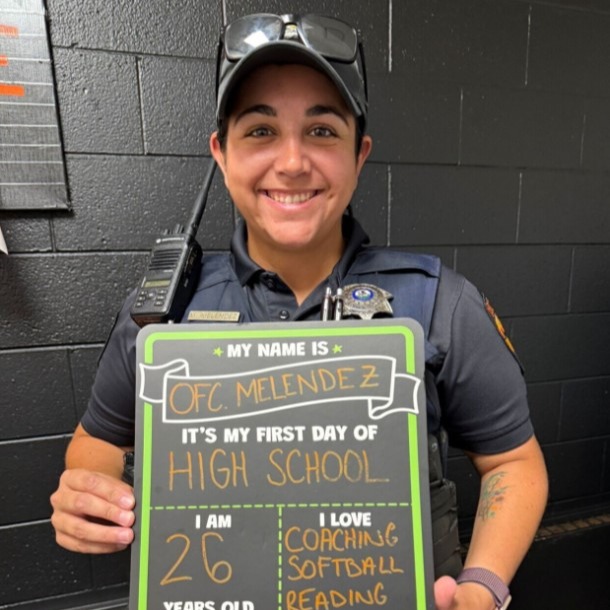 MY NAME IS
OFC. MELENDEZ
IT'S MY FIRST DAY OF
HIGH SCHOOL
I AM
26
YEARS OLD
I LOVE
COACHING
SOFTBALL
READING